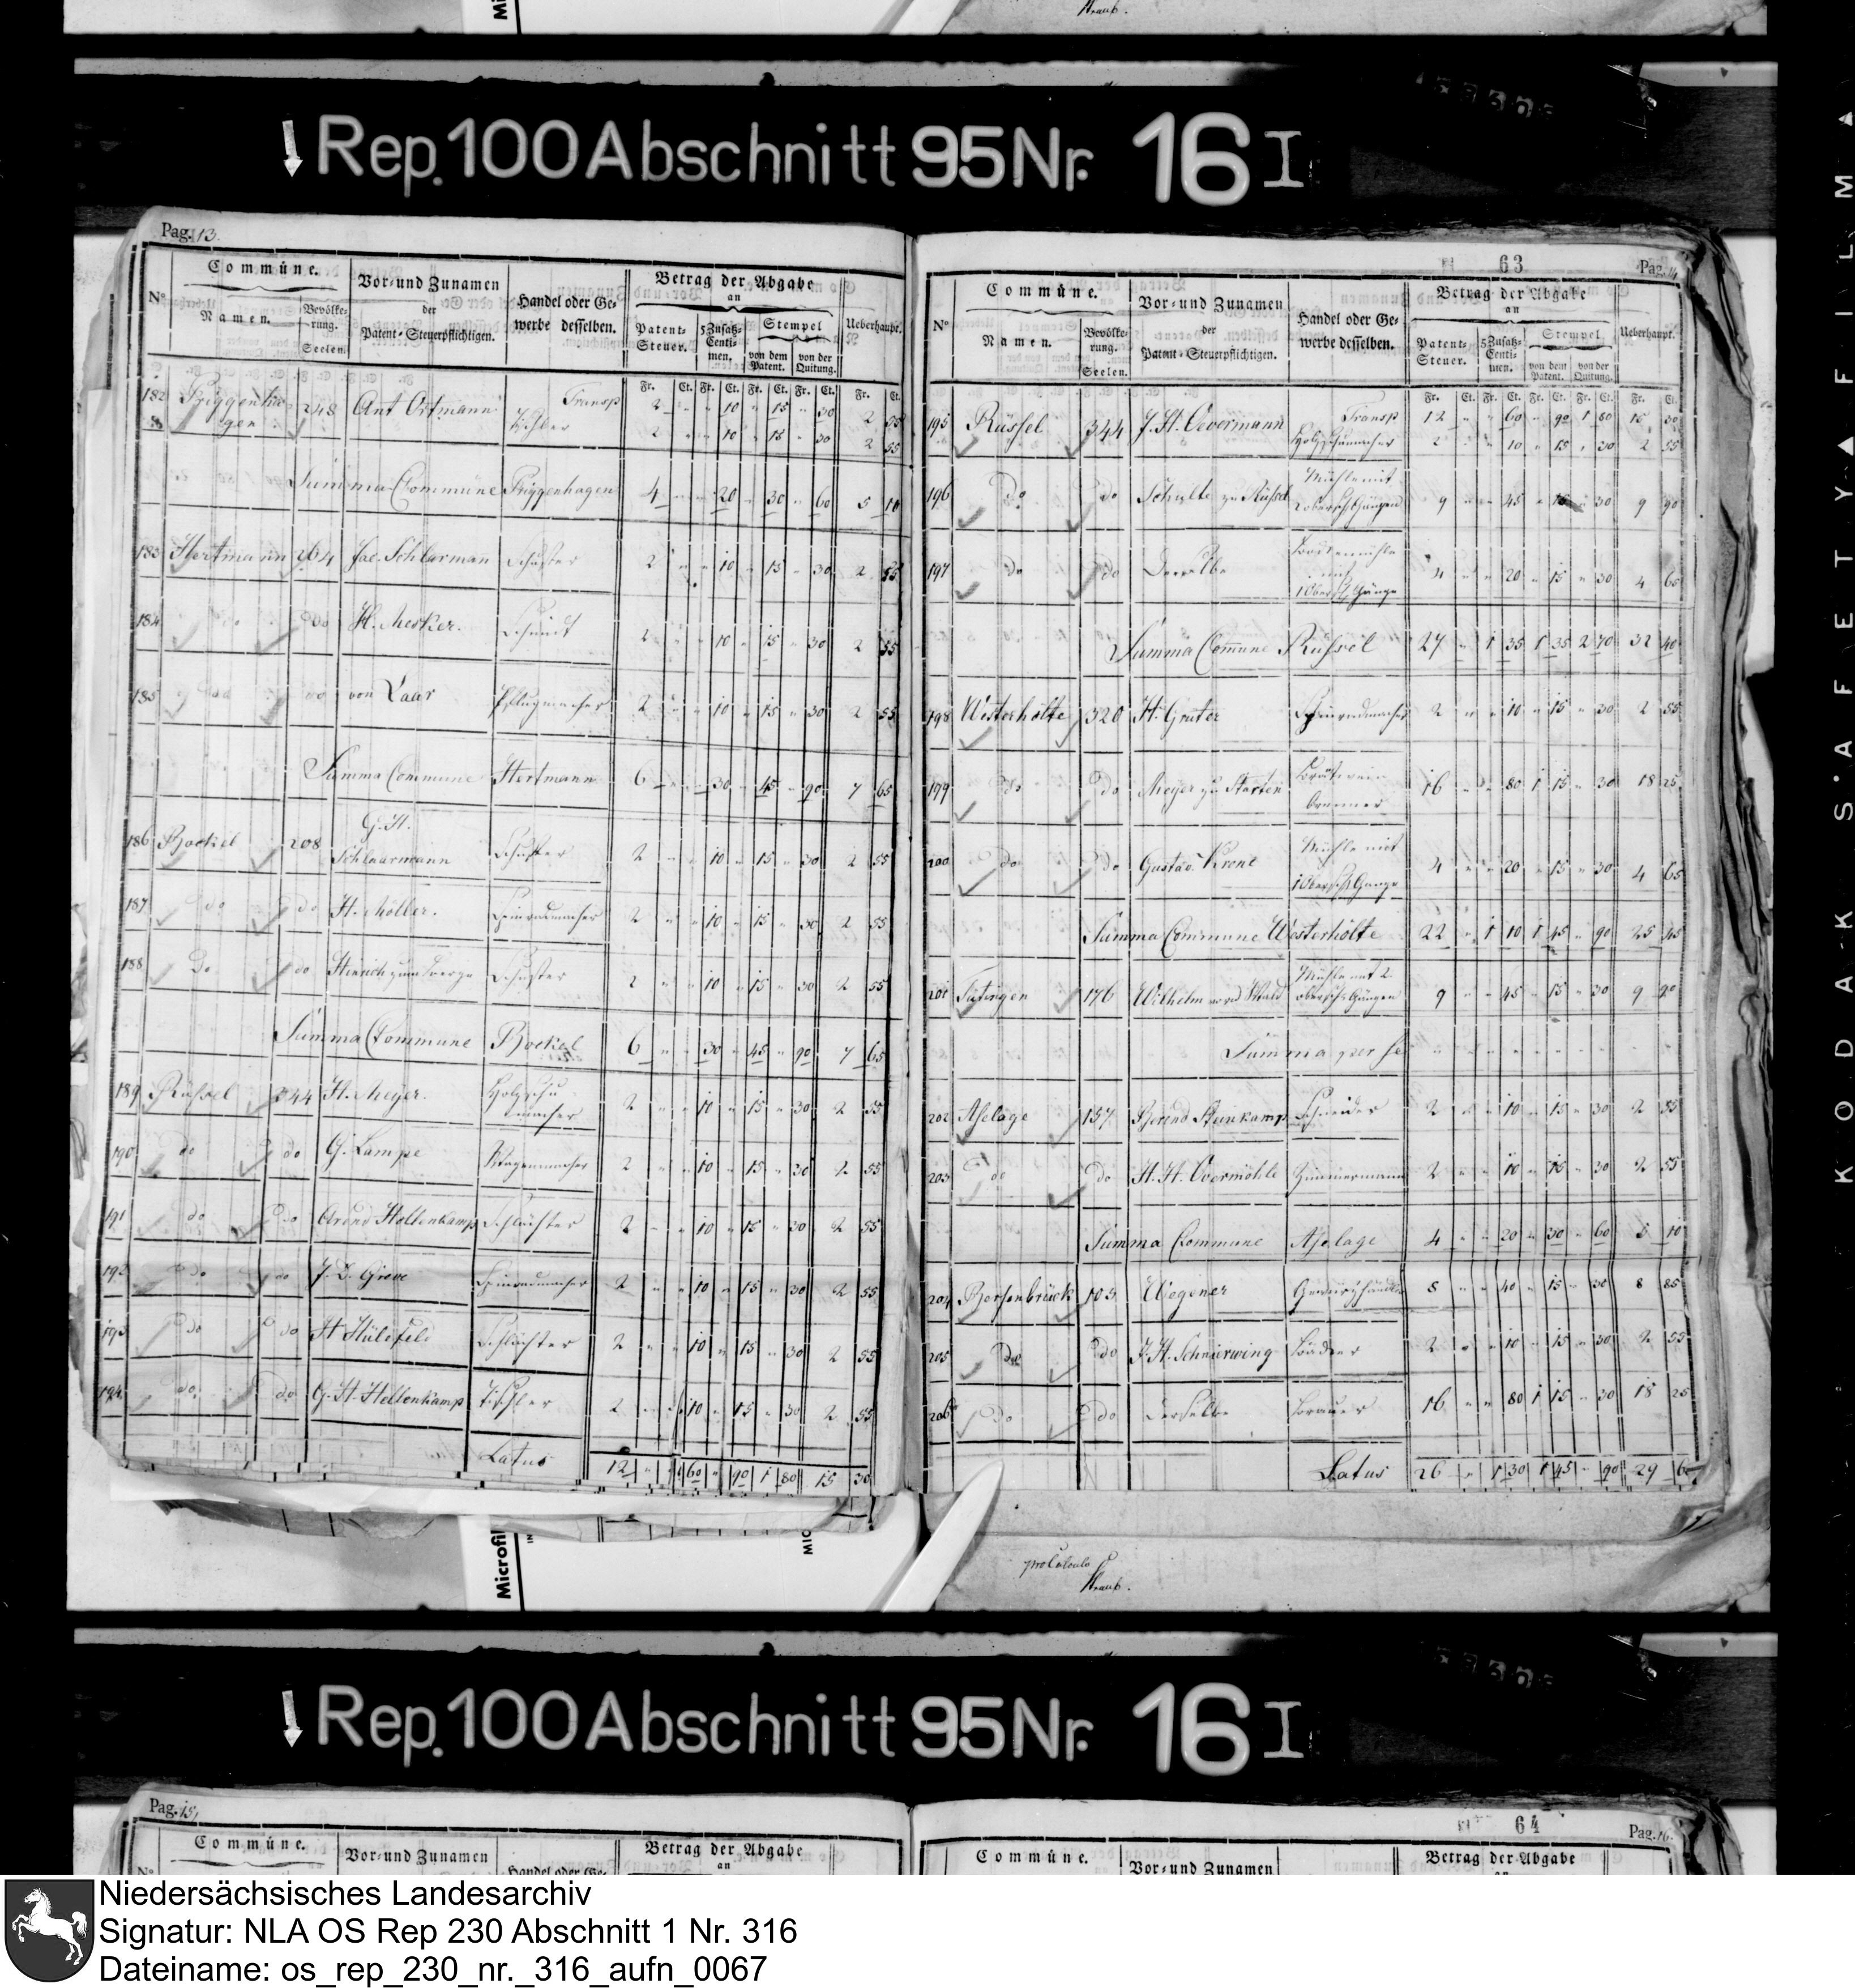 Straub.
Rep. 100 Abschnitt 95 Nr. 16 I
Pag. 13.
Commúne.
Vor- und Zunamen
der
Patent-Steuerpflichtigen.
Handel oder Ge-
werbe desselben.
Betrag der Abgabe
an
Nº
Namen.
Bevölke-
rung.
Seelen.
Patent-
Steuer.
5 Zusatz-
Centi-
men.
Stempel
von dem
Patent.
von der
Quitung.
Ueberhaupt.
Fr. Ct. Fr. Ct. Fr. Ct. Fr. Ct. Fr. Ct.
Transp 2 " " 10 " 15 " 30 2 55
182 Priggenha-
gen 248 Ant Ortmann Tischler 2 " " 10 " 15 " 30 2 55
Summa Commúne Priggenhagen 4 " " 20 " 30 " 60 5 10
183 Hertmann 264 Jac. Schlarman Schuster 2 " " 10 " 15 " 30 2 55
184 do do H. Mesker. Schmidt 2 " " 10 " 15 " 30 2 55
185 do do von Laar Pflugmacher 2 " " 10 " 15 " 30 2 55
Summa Commune Hertmann 6 " " 30 " 45 " 90 7 65
186 Bockel 208 G. H.
Schlaarmann Schuster 2 " " 10 " 15 " 30 2 55
187 do do H. Möller. Spinradmacher 2 " " 10 " 15 " 30 2 55
188 do do Hinrich zum Berge Schuster 2 " " 10 " 15 " 30 2 55
Summa Commune Bockel 6 " " 30 " 45 " 90 7 65
189 Rüssel 344 H. Meyer. Holzschu
macher 2 " " 10 " 15 " 30 2 55
190 do do G. Lampe Wagenmacher 2 " " 10 " 15 " 30 2 55
191 do do Arend Hollenkamp Schlächter 2 " " 10 " 15 " 30 2 55
192 do do J. D. Greve Spinradmacher 2 " " 10 " 15 " 30 2 55
193 do do H Hülefeld Schlächter 2 " " 10 " 15 " 30 2 55
194 do do G. H. Hellenkamp Tischler 2 " " 10 " 15 " 30 2 55
Latus 12 " " 60 " 90 1 80 15 30
63
Pag. 14
Commúne.
Vor- und Zunamen
der
Patent-Steuerpflichtigen.
Handel oder Ge-
werbe desselben.
Betrag der Abgabe
an
Nº
Namen.
Bevölke-
rung.
Seelen.
Patent-
Steuer.
5 Zusatz-
Centi-
men.
Stempel
von dem
Patent.
von der
Quitung.
Ueberhaupt.
Fr. Ct. Fr. Ct. Fr. Ct. Fr. Ct. Fr. Ct.
Transp 12 " " 60 " 90 1 80 15 30
195 Rüssel 344 J. H. Overmann Holzschumacher 2 " " 10 " 15 " 30 2 55
196 do do Schulte zu Rüssel Mühle mit
2 oberschl Gängen 9 " " 45 " 15 " 30 9 90
197 do do Derselbe
mit
1 Oberschl Gange 4 " " 20 " 15 " 30 4 65
Summa Commune Rüssel 27 " 1 35 1 35 2 70 32 40
198 Westerholte 320 H. Greter Spinradmacher 2 " " 10 " 15 " 30 2 55
199 do do Meyer zu Starten Brantwein
brenner 16 " " 80 1 15 " 30 18 25
200 do do Gustav Krone Mühle mit
1 Oberschl Gange 4 " " 20 " 15 " 30 4 65
Summa Commune Westerholte 22 " 1 10 1 45 " 90 25 45
201 Tütingen 176 Wilhelm vor d Wald Mühle mit 2
oberschl Gängen 9 " " 45 " 15 " 30 9 90
Summa per se
202 Aselage 157 Berend Steinkamp Schneider 2 " " 10 " 15 " 30 2 55
203 do do H. H. Overmöhle Zimmermann 2 " " 10 " 15 " 30 2 55
Summa Commune Aselage 4 " " 20 " 30 " 60 5 10
204 Bersenbrück 105 Wegener Gewürzhändler 8 " " 40 " 15 " 30 8 85
205 do do J H. Schnürwing Bäcker 2 " " 10 " 15 " 30 2 55
206 do do Derselbe Brauer 16 " " 80 1 15 " 30 18 25
Latus 26 " 1 30 1 45 " 90 29 65
pro Calculo
Straub.
Microfil
MIC
Rep. 100 Abschnitt 95 Nr. 16 I
Pag. 15,
Commúne.
Vor- und Zunamen
Handel oder Ge-
Betrag der Abgabe
an
Nº
64
Pag. 16.
Commúne.
Vor- und Zunamen
Betrag der Abgabe
KODAK SAFETY FILM
Niedersächsisches Landesarchiv
Signatur: NLA OS Rep 230 Abschnitt 1 Nr. 316
Dateiname: os_rep_230_nr._316_aufn_0067